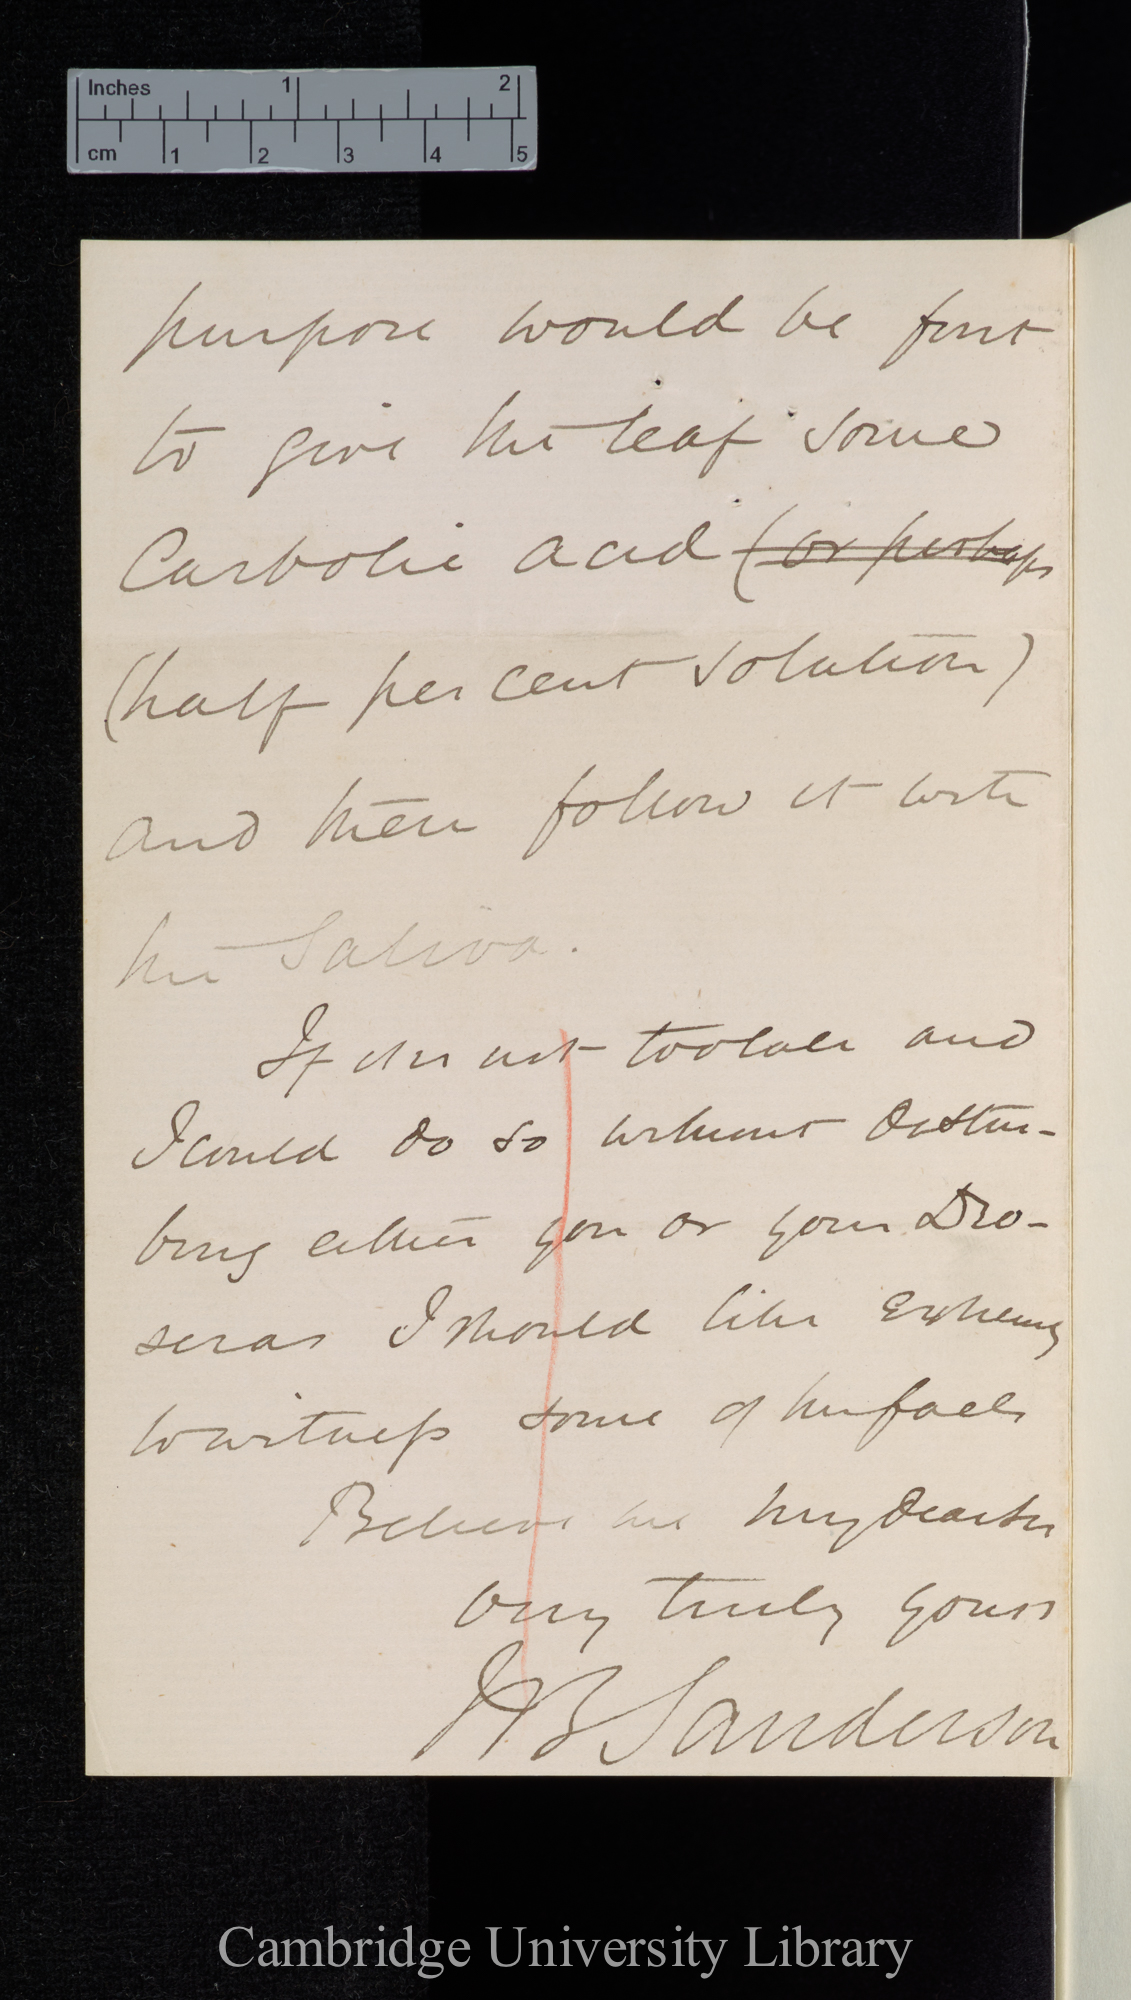 Inches 1 2
cm 1 2 3 4 5
purpose would be first
to give the leaf some
Carbolic acid (or perhaps
(half per cent solution)
and then follow it with
the Saliva.
If it is not too late and
I could do so without distur-
bing either you or your Dro-
seras I should like extremely
to witness some of the facts
Believe me my dear Sir
very truly yours
J B Sanderson
Cambridge University Library